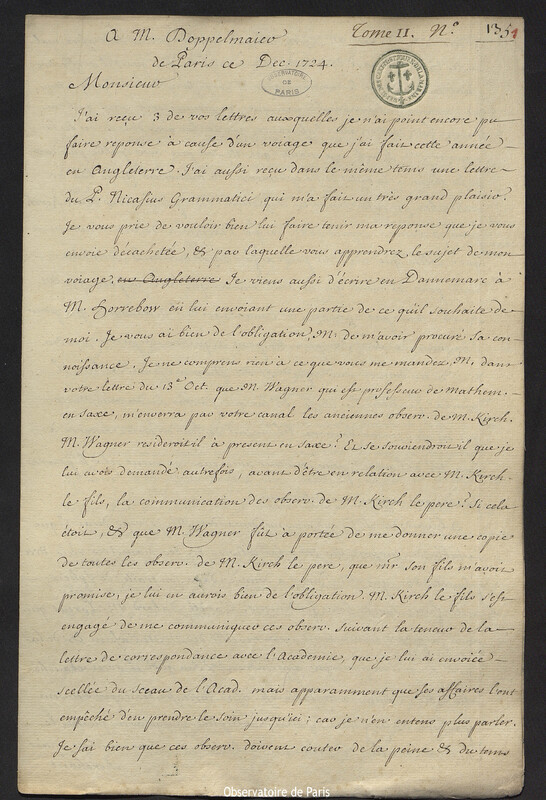 A M. Doppelmaier
Tome II. N.º 135
de Paris ce Dec. 1724.
OBSERVATOIRE DE PARIS
Monsieur
J'ai reçu 3 de vos lettres auxquelles je n'ai point encore pu
faire reponse à cause d'un voiage que j'ai fait cette année
en Angleterre. J'ai aussi reçu dans le même tems une lettre
du P. Nicasius Grammatici qui m'a fait un très grand plaisir.
Je vous prie de vouloir bien lui faire tenir ma reponse que je vous
envoie décachetée, & par laquelle vous apprendrez le sujet de mon
voiage en Angleterre Je viens aussi d'écrire en Dannemarc à
M. Horrebow en lui envoiant une partie de ce qu'il souhaite de
moi. Je vous ai bien de l'obligation, M. de m'avoir procuré sa con-
noissance. Je ne comprens rien à ce que vous me mandez, M. dans
votre lettre du 13e Oct. que M. Wagner qui est professeur de Mathem.
en Saxe, m'enverra par votre canal les anciennes observ. de M. Kirch.
M. Wagner resideroit il à present en Saxe? Et se souviendroit il que je
lui avois demandé autrefois, avant d'être en relation avec M. Kirch
le fils, la communication des observ. de M. Kirch le pere? Si cela
étoit, & que M. Wagner fût à portée de me donner une copie
de toutes les observ. de M. Kirch le pere, que mr son fils m'avoit
promise, je lui en aurois bien de l'obligation. M. Kirch le fils s'est
engagé de me communiquer ces observ. suivant la teneur de la
lettre de correspondance avec l'Academie, que je lui ai envoiée
scellée du sceau de l'Acad. mais apparamment que ses affaires l'ont
empêché d'en prendre le soin jusqu'ici; car je n'en entens plus parler.
Je sai bien que ces observ. doivent couter de la peine & du tems
Observatoire de Paris